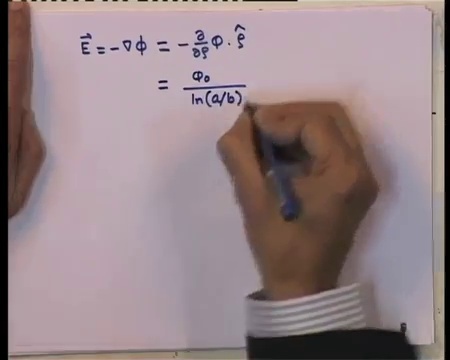 E⃗ = -∇φ = - ∂/∂ρ φ · ρ̂
= φ₀ / ln(a/b)